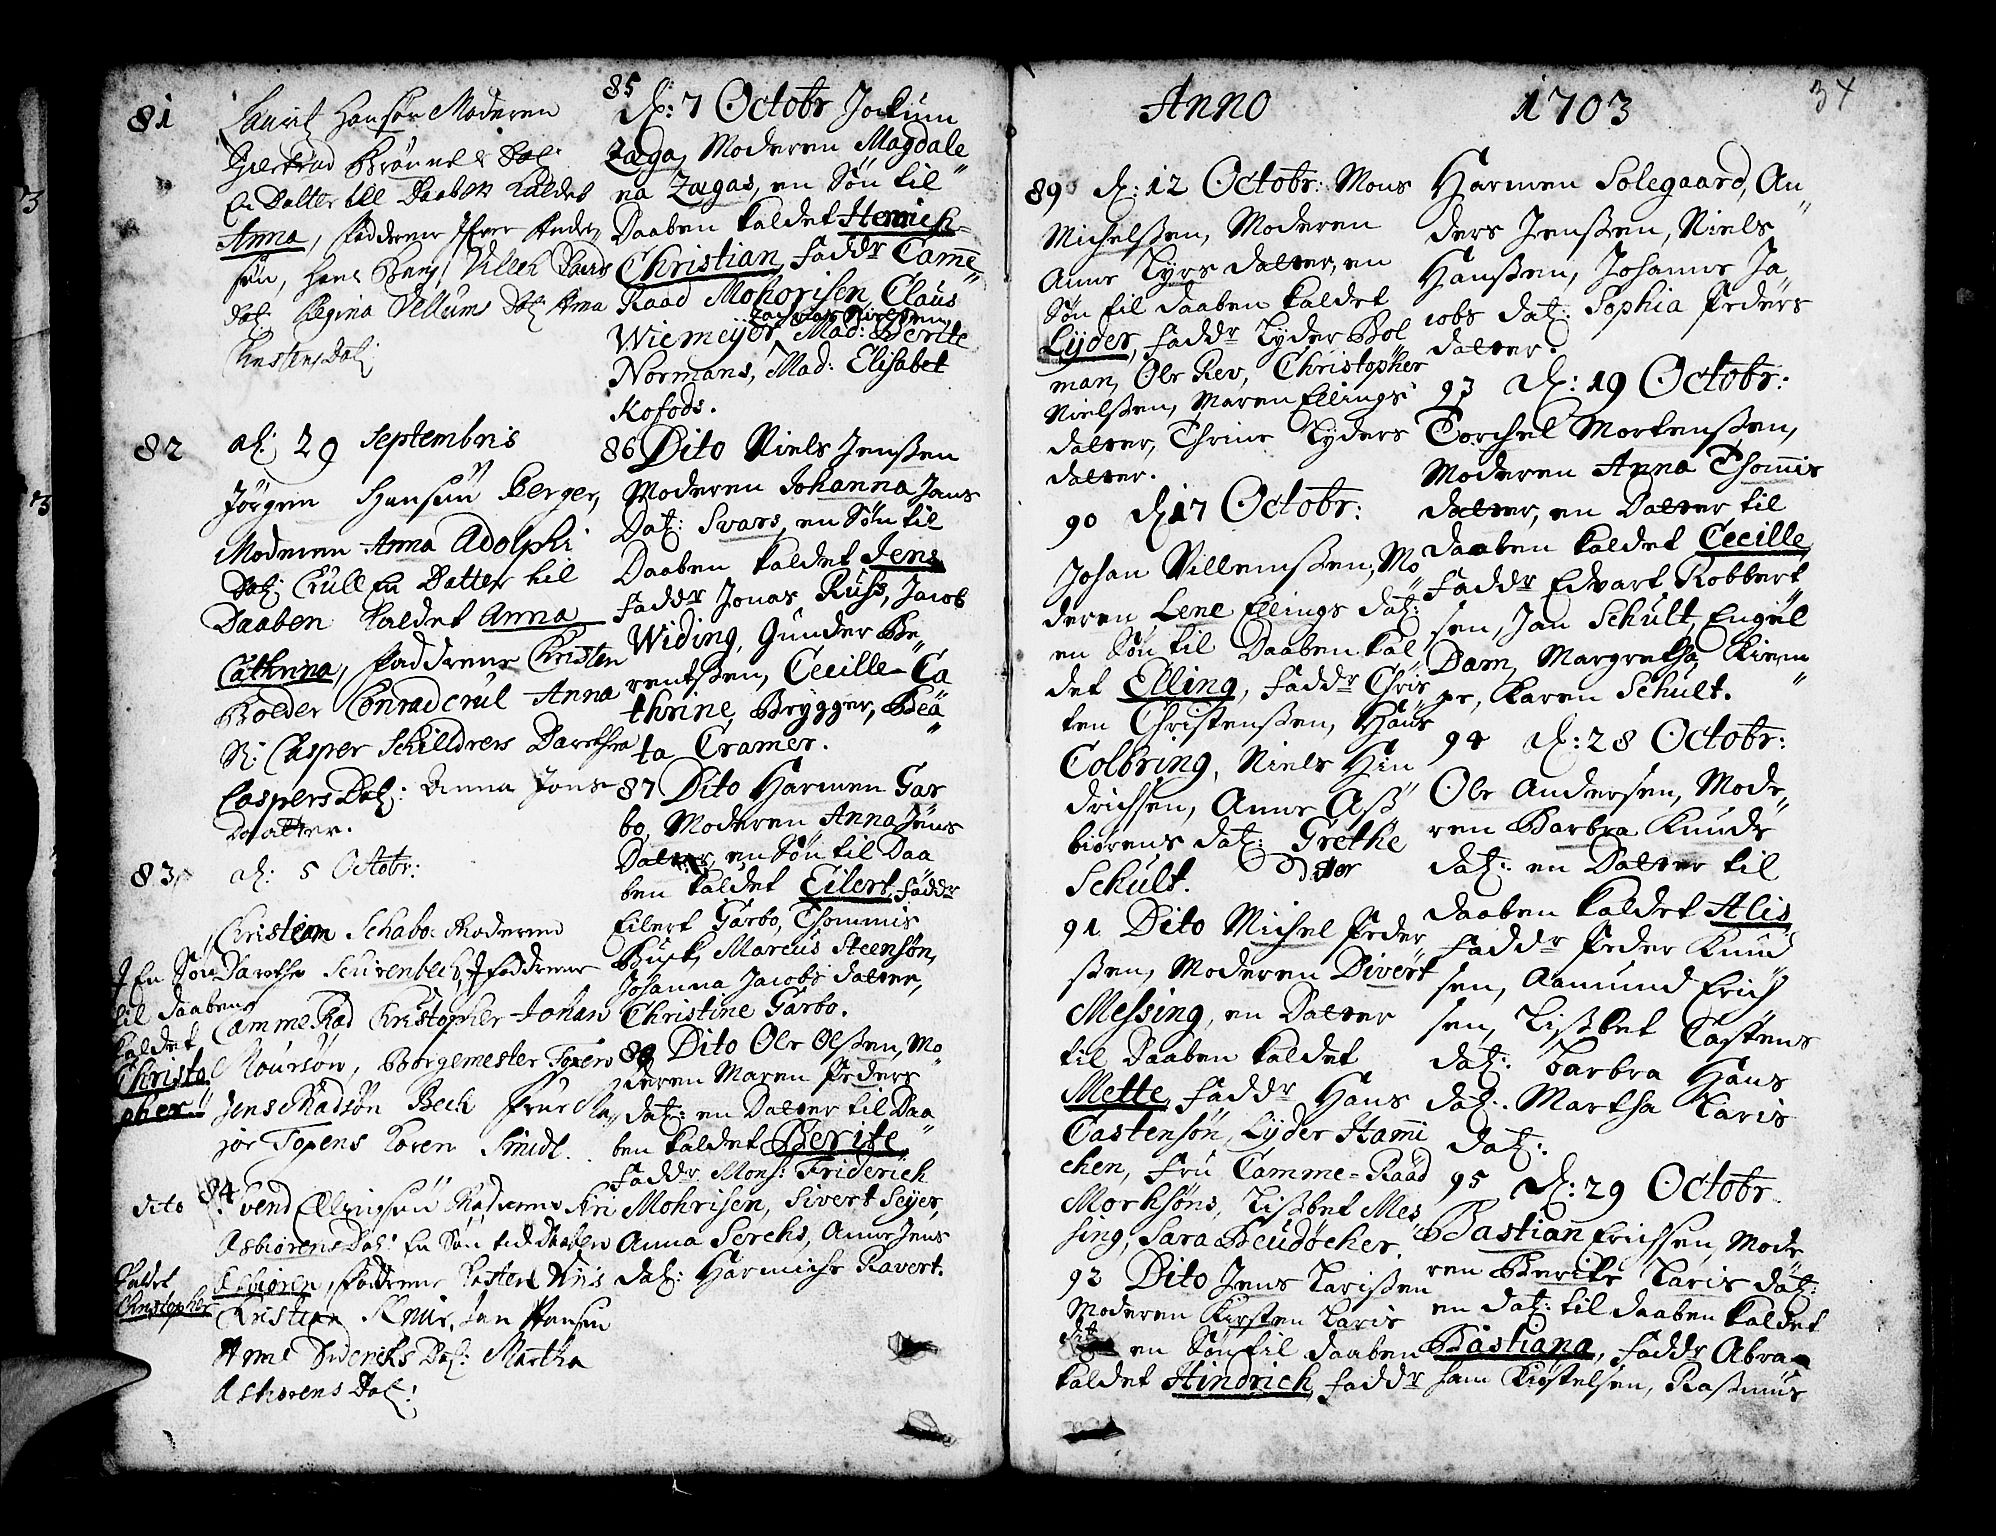 81
Laurit Hansøn Moderen
Giertrud Brønnels Dat:
En Datter till Daaben Kaldet
Anna, fadderne Iffver Ander„
søn, Hans Bang, Villeh Davids
Dat: Regina Vellums Dat: Anna
Christens Dat:
82 d: 29 Septembris
Jørgen Hansøn Berger,
Moderen Anna Adolphi
Dat: Crull En Datter til
Daaben Kaldet Anna
Cathrina, fadderne Christen
Bolder Conrad Crul Anna
Sl: Casper Schilldrers Darethea
Caspers Dat: Anna Jons
Daatter.
83 d: 5 Octobr:
Christian Schaboe Moderen
Darethe Schirenbech, fadderne
En Søn
til Daaben
Kaldet
Christo
pher
Camme Rad Christopher Johan
Moursøn, Borgemester Topen
Jens Madsøn Bech Frue Ma„
jor Topens Karen Smidt.
dito 84 Svend Ellingsøn Moderen Siri
Asbiørens Dat: En Søn till Daaben
Kaldet
Christopher
Esbiøren, fadderne Kasten Friis
Christian Knuis, Jan Hansen
Anne Didericks Dat: Martha
Asbiørens Dat:
85
d: 7 Octobr Jockum
Zæga, Moderen Magdale„
na Zægas, en Søn til
Daaben kaldet Henrich=
Christian faddr Camē„
Raad Mohorisen, Claus
Zacharias Nielsen
Wiemeyer, Mad: Berite
Normans, Mad: Elisabet
Kofods.
86 Dito Niels Jenßen
Moderen Johanna Jans
Dat: Svars, en Søn til
Daaben kaldet Jens
faddr Jonas Russ, Jacob
Widing, Gunder Be„
rentßen, Cecille-Ca
thrine, Brygger, Bea„
ta Cramer.
87 Dito Harmen Gar
bo, Moderen Anna Jens
Datter, en Søn til Daa
ben kaldet Eilert, faddr
Eilert Garbo, Thommis
Buck, Marcus Steensøn,
Johanna Jacobs Datter,
Christine Garbo.
88 Dito Ole Olßen, Mo„
deren Maren Peders
dat: en Datter til Daa„
ben kaldet Berite,
faddr Mons: Friderich
Mohrisen, Sivert Seyer,
Anna Serchs, Anne Jens
dat: Harmiche Ravert.
Anno 1703 34
89 d: 12 Octobr: Mons
Michelßen, Moderen
Anne Lyrs datter, en
Søn til daaben kaldet
Lyder, faddr Lyder Bol
man, Ole Rev, Christopher
Nielßen, Maren Ellings
datter, Thrine Lyders
datter.
90 d: 17 Octobr:
Johan Villemßen, Mo„
deren Lene Ellings dat:
en Søn til Daaben kal„
det Elling, faddr Chris„
ten Christenßen, Hans
Colbring, Niels Hin
drichsen, Anne Aß„
biørens dat: Grethe
Schult. dtter
91 Dito Michel Peder
ßen, Moderen Divert
Messing, en Datter
til Daaben kaldet
Mette, faddr Hans
Castensøn, Lyder Hami
chen, fru Camme=Raad
Morksøns, Lißbet Mes„
sing, Sara Beudøcher.
92 Dito Jens Larißen
Moderen Kirsten Laris
dat en Søn til daaben
kaldet Hindrich, faddr
Harmen Solegaard, An„
ders Jenßen, Niels
Hanßen, Johanne Ja„
cobs dat: Sophia Peders
datter.
93 d: 19 Octobr:
Torchel Mortenßen,
Moderen Anna Thomis
datter, en Datter til
daaben kaldet Cecille
faddr Edvart Robbert„
sen, Jan Schult, Engel
Dam, Margretha Kiem„
pe, Karen Schult.
94 d: 28 Octobr:
Ole Andersen, Mode„
ren Barbra Knuds
dat: en Datter til
daaben kaldet Alis,
faddr Peder Knud„
sen, Aamund Erich
sen, Lißbet Castens
dat: Barbra Hans
dat: Martha Laris
dat:
95 d: 29 Octobr.
Bastian Erichsen, Mode„
ren Berite Laris dat:
en dat: til daaben kaldet
Bastiana, faddr Abra
ham Kiøstelsen, Raßmus